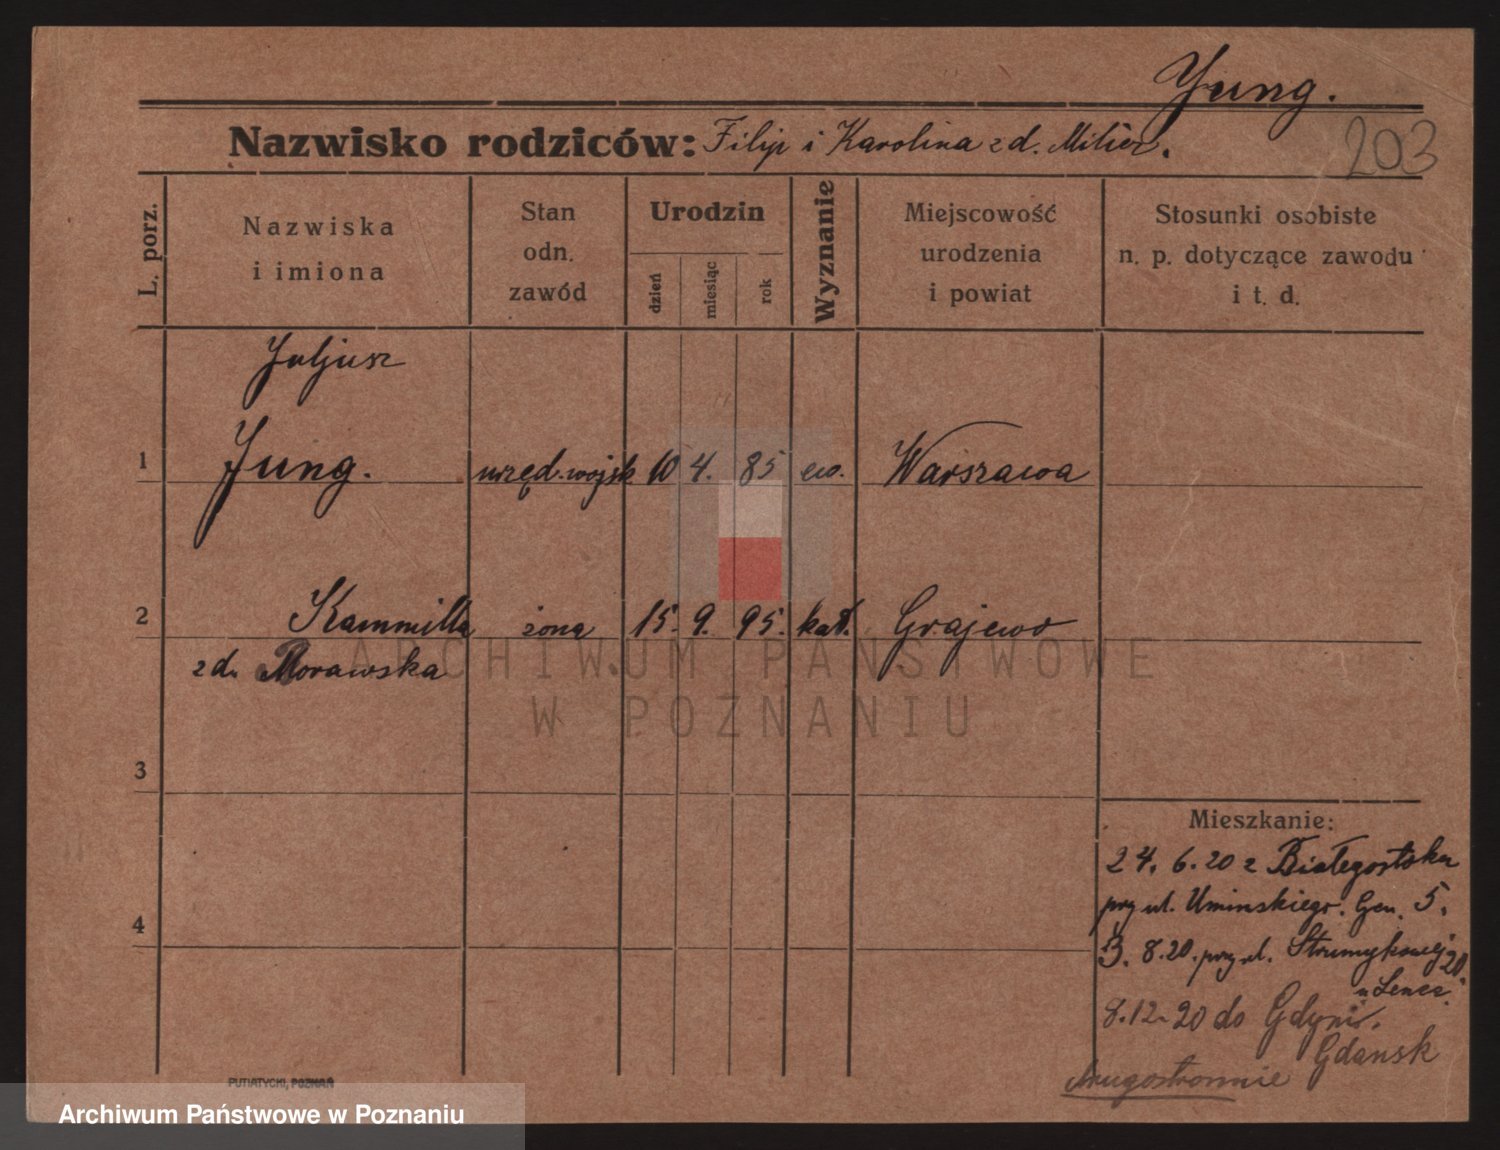 Jung.
Nazwisko rodziców: Filip i Karolina z d. Milier.
203
L. porz.
Nazwiska
i imiona
Stan
odn.
zawód
Urodzin
dzień
miesiąc
rok
Wyznanie
Miejscowość
urodzenia
i powiat
Stosunki osobiste
n. p. dotyczące zawodu
i t. d.
Juljusz
1 Jung. urzęd. wojsk 10 4. 85 ew. Warszawa
2 Kammilla żona 15. 9. 95. kat. Grajewo
z d. Morawska
3
4
Mieszkanie:
24. 6. 20 z Białegostoku
przy ul. Umińskiego. Gen. 5.
3. 8. 20. przy ul. Strumykowej 20.
u Lencz.
8. 12. 20 do Gdyni.
Gdansk
drugostronnie
PUTIATYCKI, POZNAŃ
ARCHIWUM PAŃSTWOWE
W POZNANIU
Archiwum Państwowe w Poznaniu